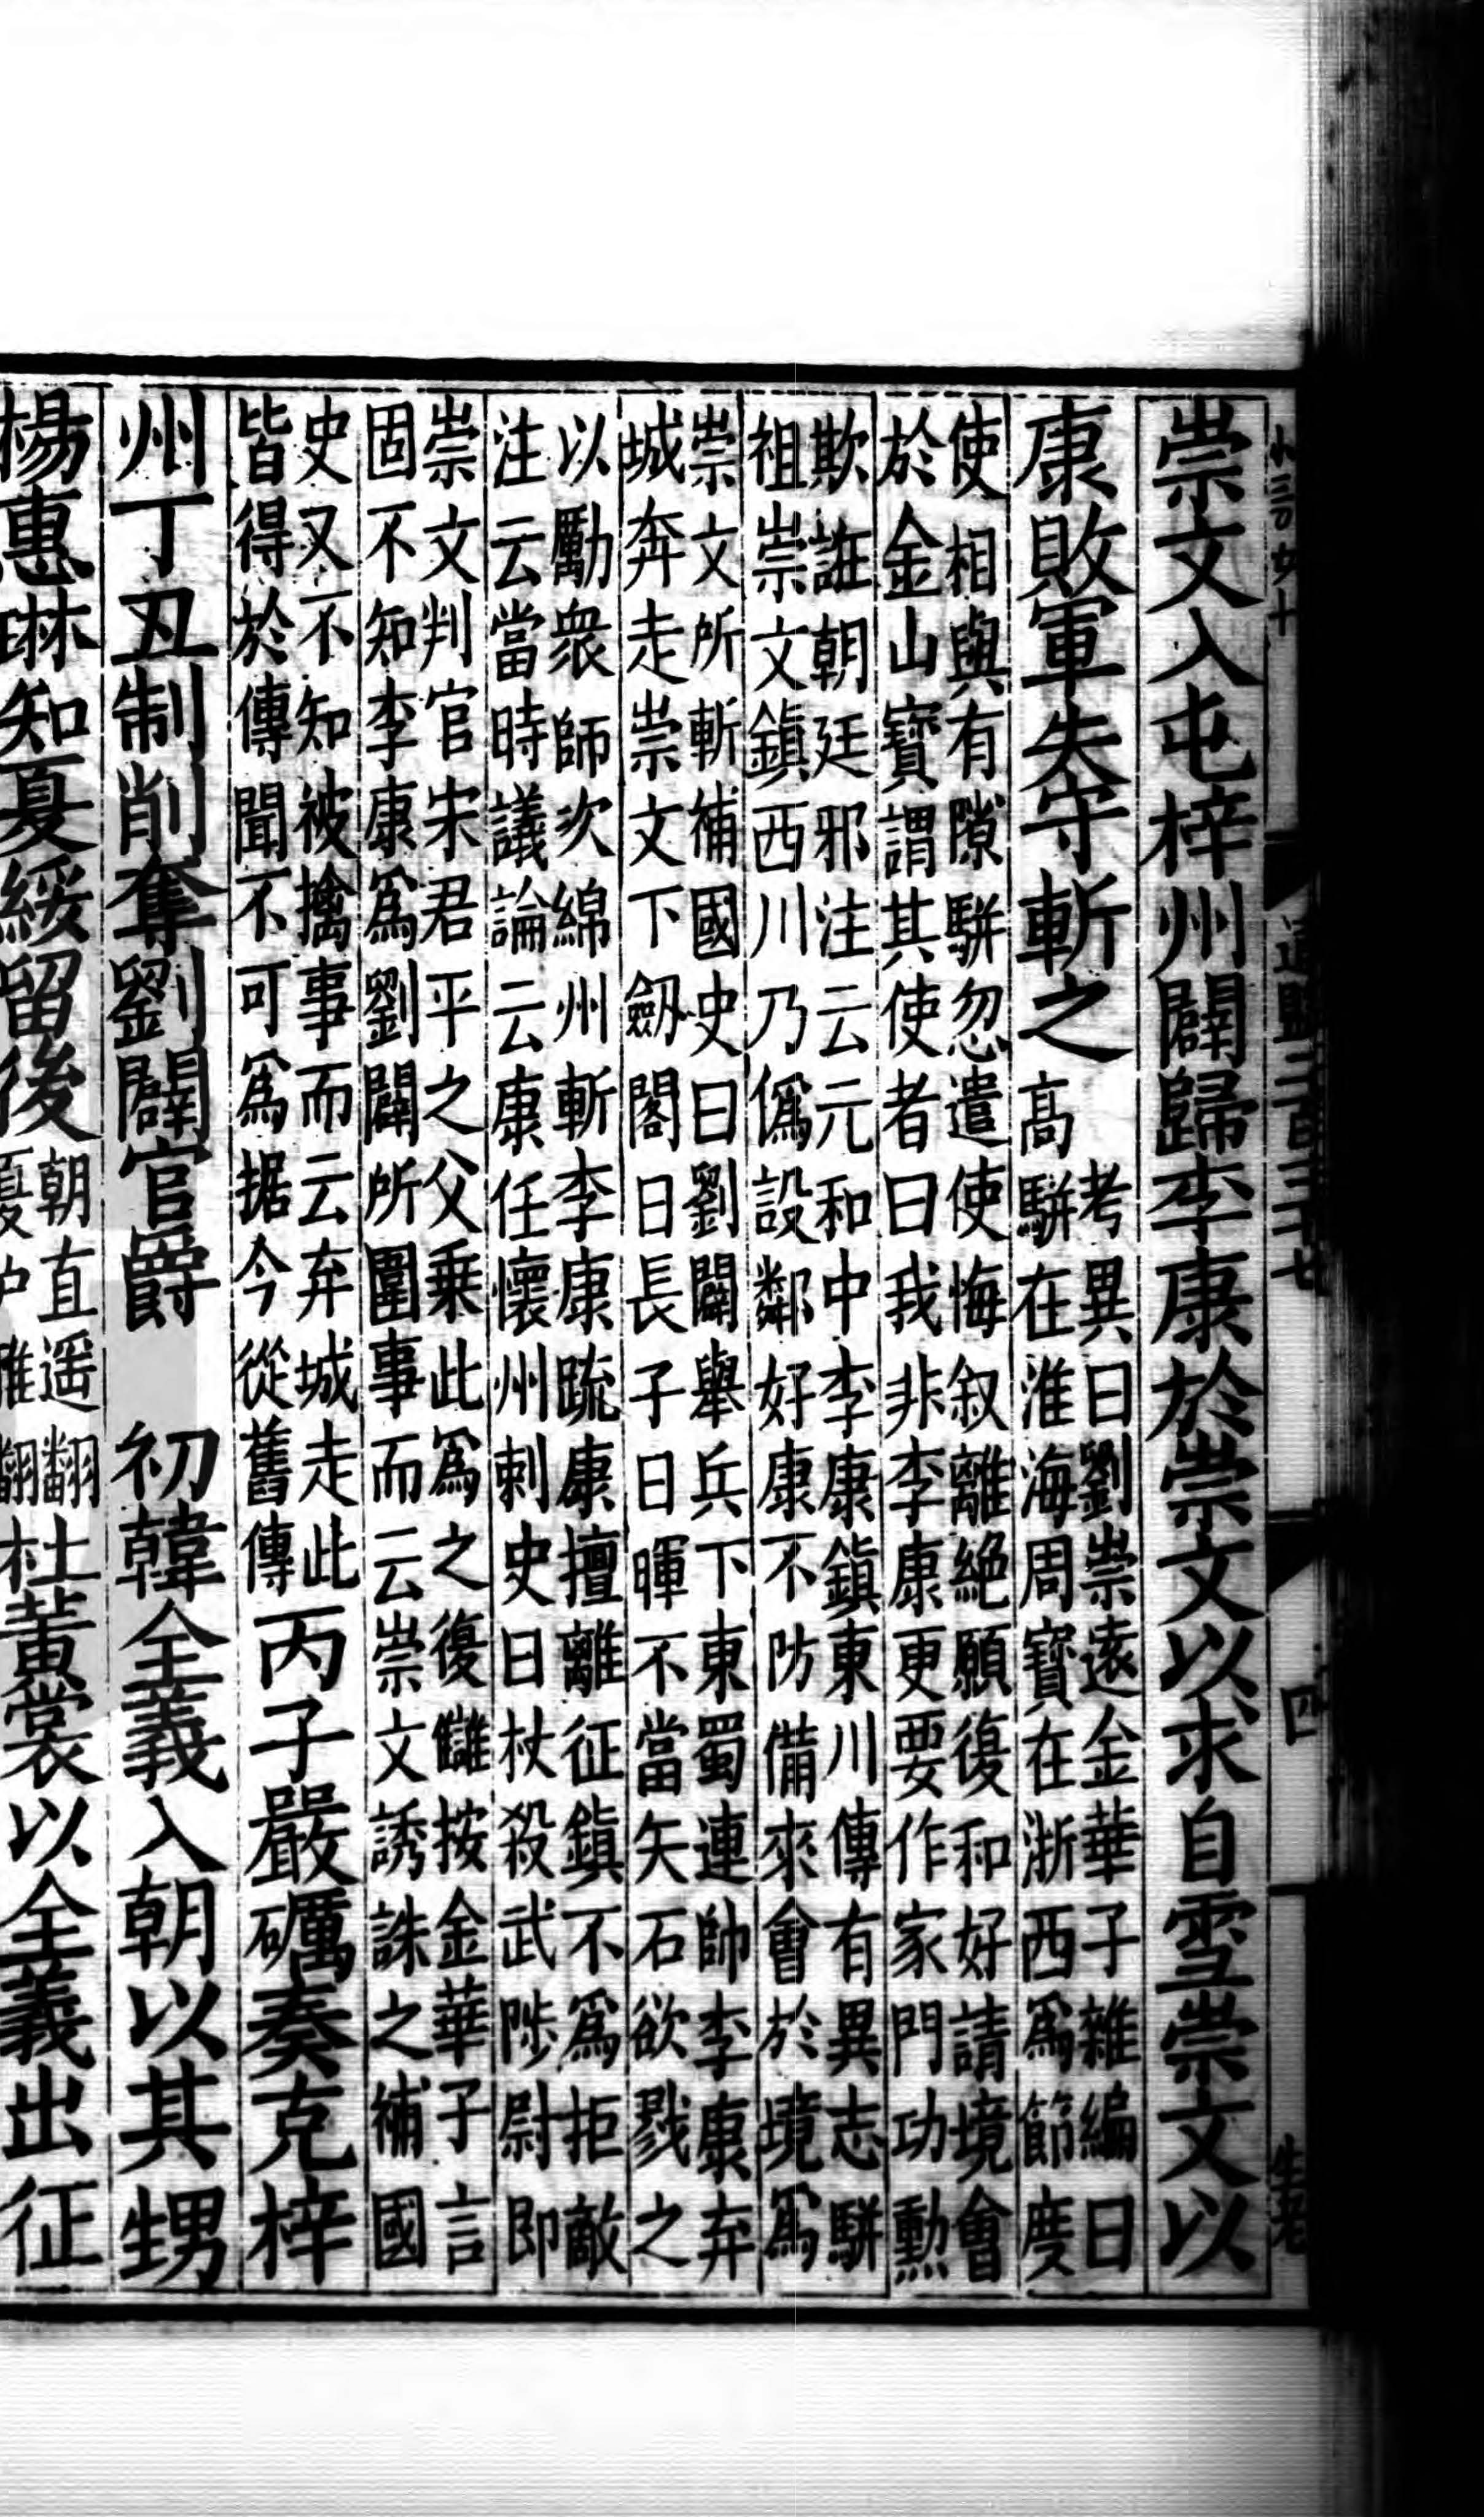 崇文入屯梓州闢歸李康於崇文以求自雪崇文以
康敗軍失守斬之
考異曰劉崇遠金華子雜編曰
高駢在淮海周寶在浙西為節度
使相與有隙駢忽遣使悔叙離絶願復和好請境會
於金山寶謂其使者曰我非李康更要作家門功勳
欺誑朝廷邪注云元和中李康鎮東川傳有異志駢
祖崇文鎮西川乃偽設鄰好康不防備來會於境為
崇文所斬補國史曰劉闢舉兵下東蜀連帥李康弃
城奔走崇文下劒閣日長子曰暉不當矢石欲戮之
以勵衆師次綿州斬李康䟽康擅離征鎮不為拒敵
注云當時議論云康任懷州刺史日杖殺武陟尉即
崇文判官宋君平之父乗此為之復讎按金華子言
固不知李康為劉闢所圍事而云崇文誘誅之補國
史又不知被擒事而云弃城走此
皆得於傳聞不可為据今從舊傳
丙子嚴礪奏克梓
州丁丑制削奪劉闢官爵　初韓全義入朝以其甥
楊惠琳知夏綏留後
朝直遥翻
杜黃裳以全義出征
四